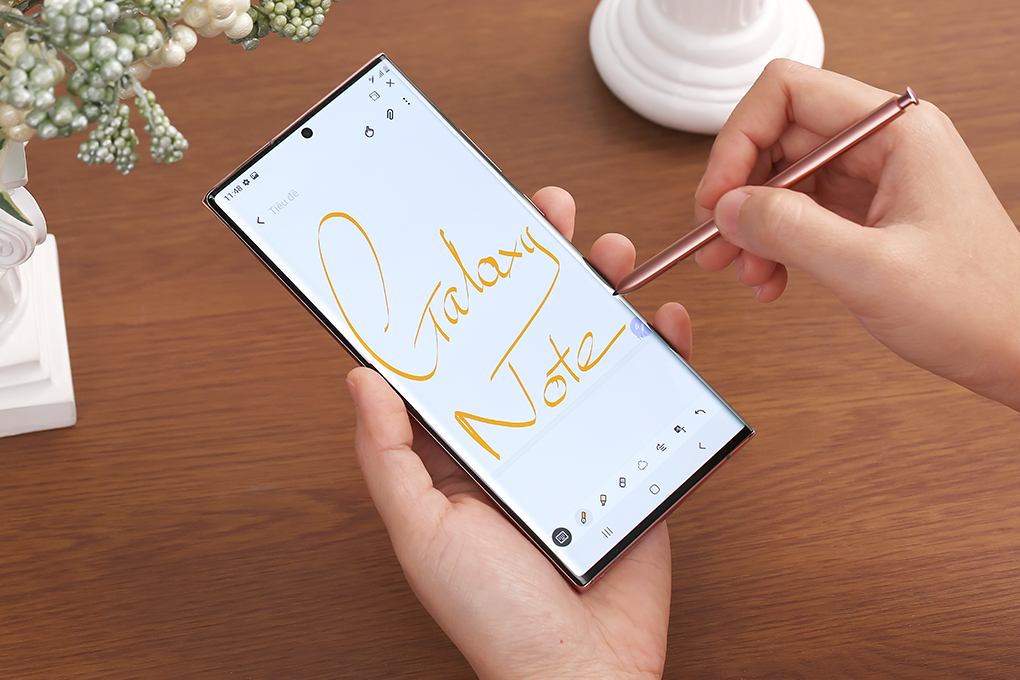 11:48
Tiêu đề
Galaxy
Note